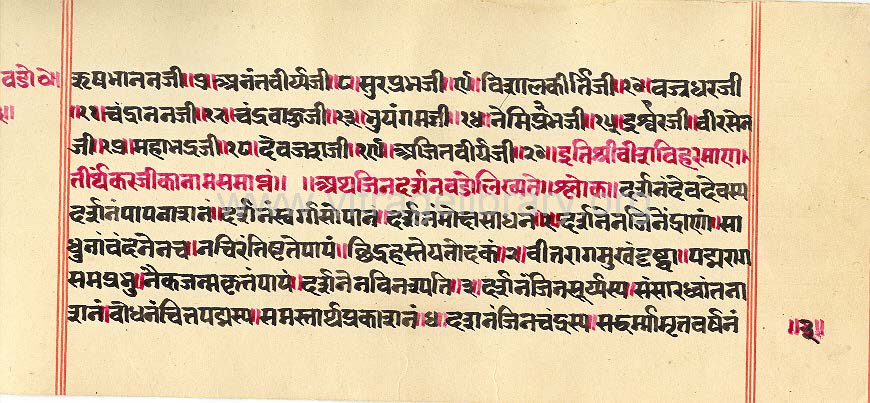 वडो०॥ ऋषभाननजी॥७॥अनंतवीर्यजी॥८॥सुरप्रभजी॥९॥विशालकीर्तिजी॥१०॥वज्रधरजी
॥११॥चंद्राननजी॥१२॥चंद्रबाहुजी॥१३॥भुयंगमजी॥१४॥नेमिप्रभजी॥१५॥ईश्वरजी॥वीरसेन
जी॥१७॥महाभद्रजी॥१८॥दैवजशजी॥१९॥अजितवीर्यजी॥२०॥इतिश्रीवीशविहरमाण।
तीर्थंकरजीकानामसमाप्तं॥ ॥अथजिनदर्शनवडोलिख्यते॥श्लोक॥दर्शनंदेवदेवस्य
दर्शनंपापनाशनं॥दर्शनंस्वर्गसोपानं॥दर्शनंमोक्षसाधनं॥१॥दर्शनेनजिनेंद्राणां॥सा
धुनांवंदनेनच॥नचिरंतिष्टतेपापं॥छिद्रहस्तेयथोदकं॥२॥वीतरागमुखंदृष्ट्वा॥पद्मराग
समप्रभु॥नैकजन्मकृतंपापं॥दर्शनेनविनश्यति॥३॥दर्शनंजिनसूर्यस्य॥संसारध्वांतना
शनं॥बोधनंचितपद्मस्य॥समस्तार्थप्रकाशनं॥४॥दर्शनंजिनचंद्रस्य॥सद्धर्म्मामृतवर्षनं
॥३॥
www.vitragelibrary.org